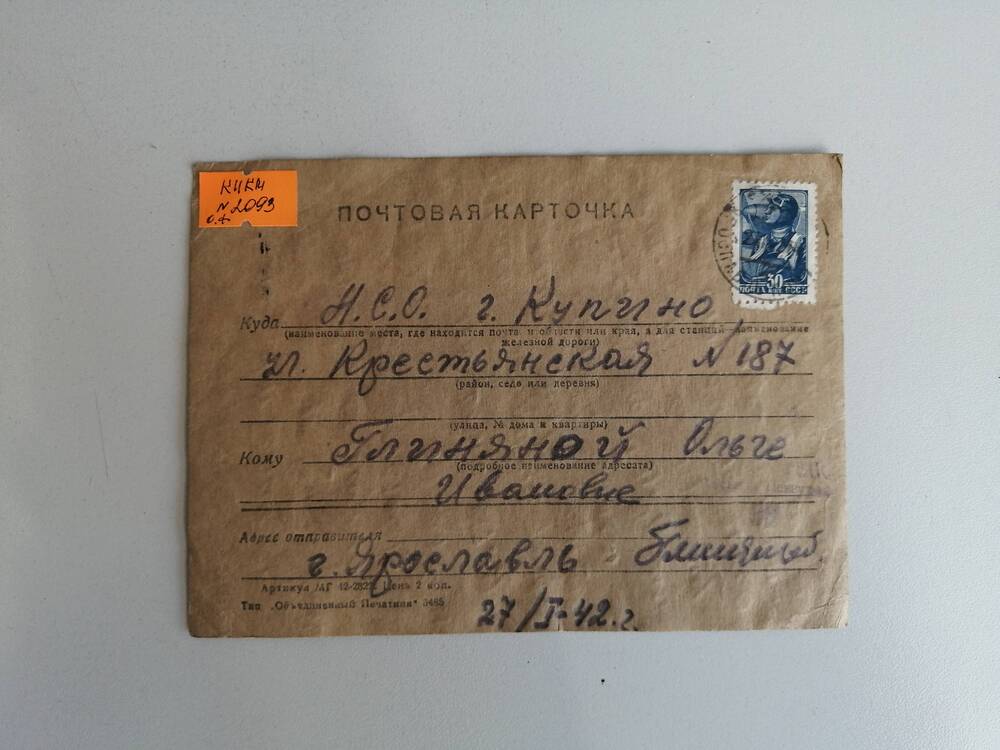 КИКМ
N 2093
о.ф
ПОЧТОВАЯ КАРТОЧКА
30
ПОЧТА СССР
Куда Н.С.О. г. Купино
(наименование места, где находится почта и области или края, а для станций наименование железной дороги)
ул. Крестьянская N 187
(район, село или деревня)
(улица, № дома и квартиры)
Кому Глиняной Ольге
(подробное наименование адресата)
Ивановне
Адрес отправителя
г. Ярославль
Артикул Цень 2 коп.
Тип „Объединенный Печатник" 5485
27/I-42.г.